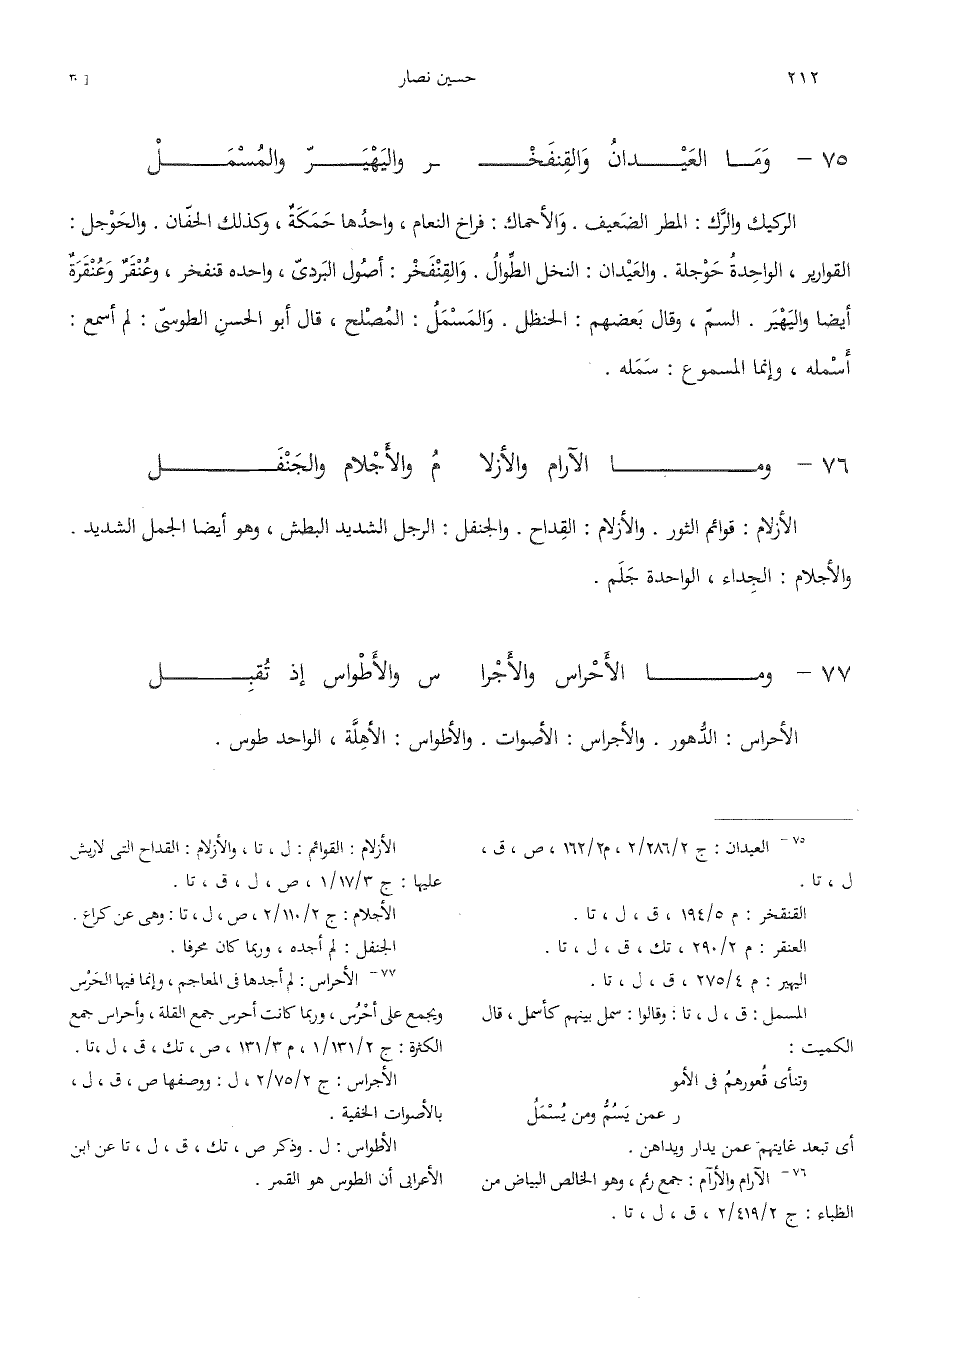 ٢١٢ حسين نصار [ ٣٠
٧٥ – وَمَا العَيْدانُ وَالقِنفَخْـ ـر واليَهْيَرّ والمُسْمَلْ
الركيك والرَّك : المطر الضَعيف . وَالأحماك : فراخ النعام ، واحدُها حَمَكَةٌ ، وكذلك الحفّان . والحَوْجل :
القوارير ، الواحِدةُ حَوْجلة . والعَيْدان : النخل الطِّوالُ . وَالقِنْفَخْر : أصُول البَردىّ ، واحده قنفخر ، وعُنْقَرٌ وَعُنْقَرَةٌ
أيضا واليَهْيَر . السمّ ، وقال بَعضهم : الحنظل . وَالمَسْمَلُ : المُصْلح ، قال أبو الحسنِ الطوسىّ : لم أسمع :
أَسْمله ، وإنما المسموع : سَمَله .
٧٦ – ومـا الآرام والأزلا مُ والأَجْلام والجَنْفَـل
الأزلام : قوائم الثور . والأزلام : القِداح . والجنفل : الرجل الشديد البطش ، وهو أيضا الجمل الشديد .
والأجلام : الجِداء ، الواحدة جَلَم .
٧٧ – ومـا الأَحْراس والأَجْرا س والأَطْواس إذ تُقبِـل
الأحراس : الدُّهور . والأجراس : الأصوات . والأطواس : الأهِلَّة ، الواحد طوس .
٧٥ – العيدان : ج ٢/٢٨٦/٢ ، م٢/١٦٢ ، ص ، ق ،
ل ، تا .
القنقخر : م ١٩٤/٥ ، ق ، ل ، تا .
العنقر : م ٢٩٠/٢ ، تك ، ق ، ل ، تا .
اليهير : م ٢٧٥/٤ ، ق ، ل ، تا .
المسمل : ق ، ل ، تا : وقالوا : سمل بينهم كأسمل ، قال
الكميت :
وتنأى قُعورهمُ فى الأمو
ر عمن يَسُمُّ ومن يُسْمَلُ
أى تبعد غايتهم عمن يدار ويداهن .
٧٦ – الآرام والأرآم : جمع رئم ، وهو الخالص البياض من
الظباء : ج ٢/٤١٩/٢ ، ق ، ل ، تا .
الأزلام : القوائم : ل ، تا ، والأزلام : القداح التى لاريش
عليها : ج ١/١٧/٣ ، ص ، ل ، ق ، تا .
الأجلام : ج ٢/١١٠/٢ ، ص ، ل ، تا : وهى عن كراع .
الجنفل : لم أجده ، وربما كان محرفا .
٧٧ – الأحراس : لم أجدها فى المعاجم ، وإنما فيها الحَرْس
ويجمع على أحْرُس ، وربما كانت أحرس جمع القلة ، وأحراس جمع
الكثرة : ج ١/١٣١/٢ ، م ١٣١/٣ ، ص ، تك ، ق ، ل ،تا .
الأجراس : ج ٢/٧٥/٢ ، ل : ووصفها ص ، ق ، ل ،
بالأصوات الخفية .
الأطواس : ل . وذكر ص ، تك ، ق ، ل ، تا عن ابن
الأعرابى أن الطوس هو القمر .